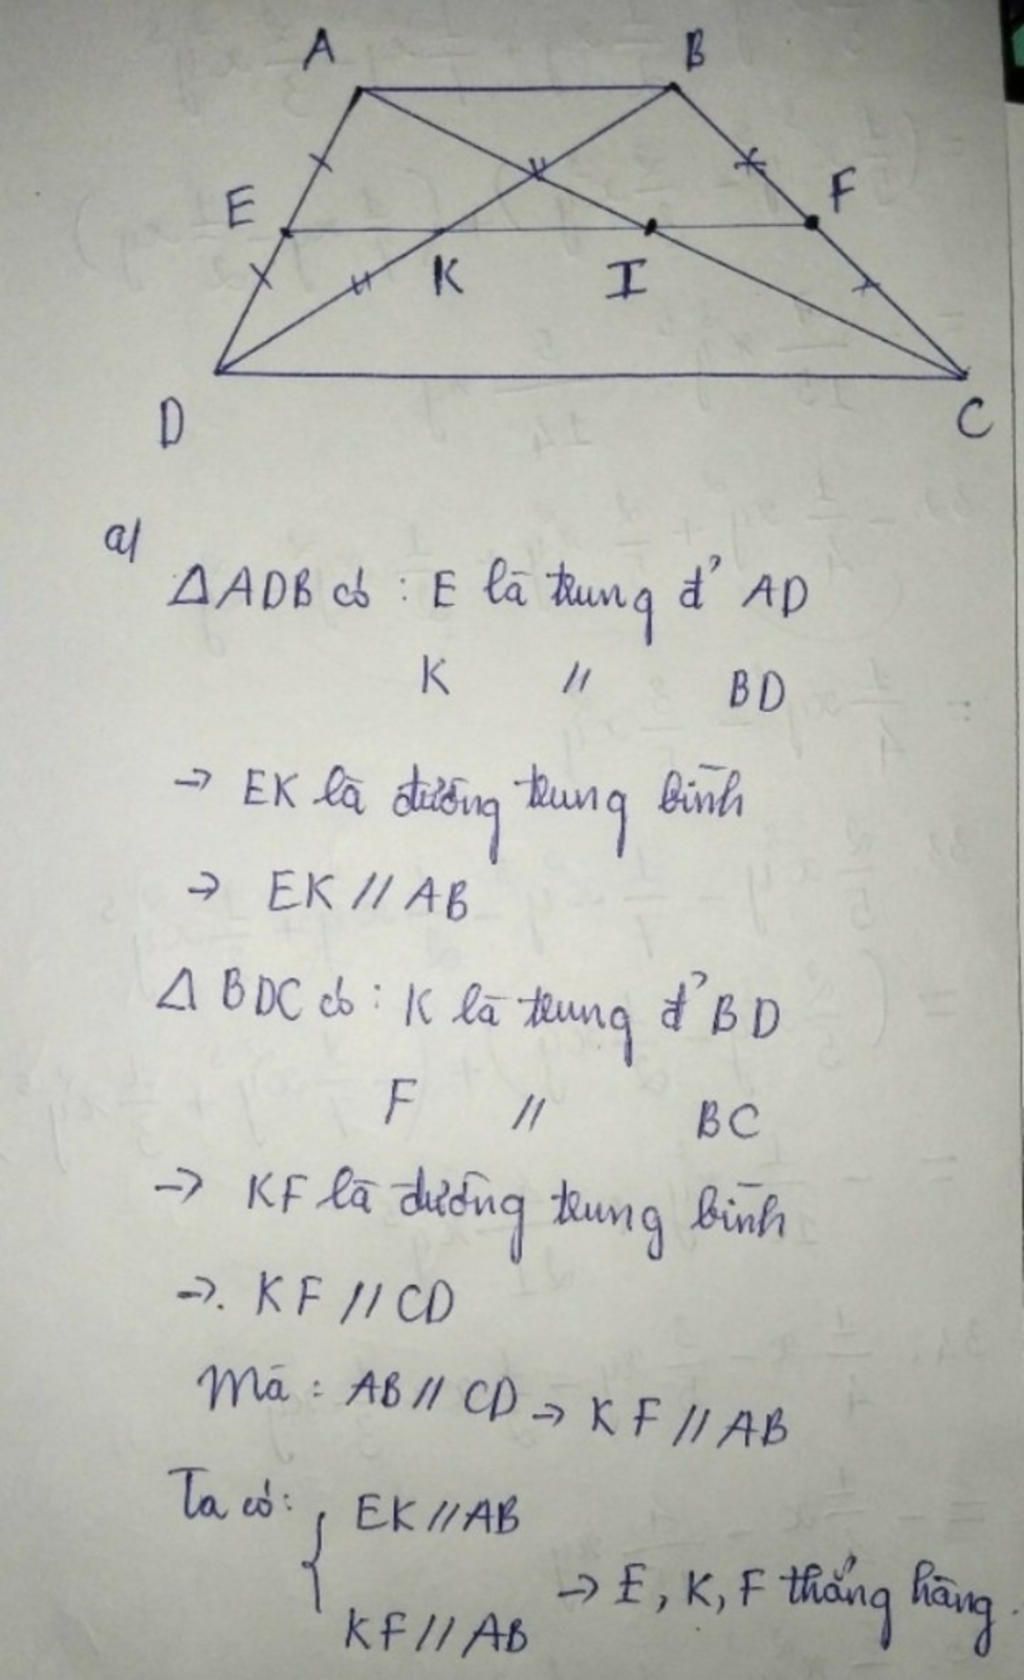 A B
E F
K I
D C
a/
ΔADB có : E là trung đ' AD
K // BD
→ EK là đường trung bình
→ EK // AB
Δ BDC có : K là trung đ' BD
F // BC
→ KF là đường trung bình
→. KF // CD
Mà : AB // CD → KF // AB
Ta có: { EK // AB
KF // AB → E, K, F thẳng hàng.